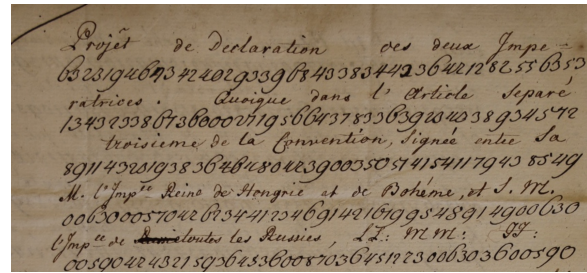 Projét de Declaration des deux Impe=
63231946734240293396843383442364421282556353
ratrices. Quoique dans l'Article separé
134323386736000271956643783363923403893 4572
troisieme de la Convention, signée entre Sa
891143201938364648042390035051415411794385 49
M. l'Impce Reine de Hongrie et de Bohéme, et S. M.
006300057042623441234691421619954891 4900630
l'Impce de toutes les Russies, LL: MM: II:
005904243215936453600870363645123600303600590